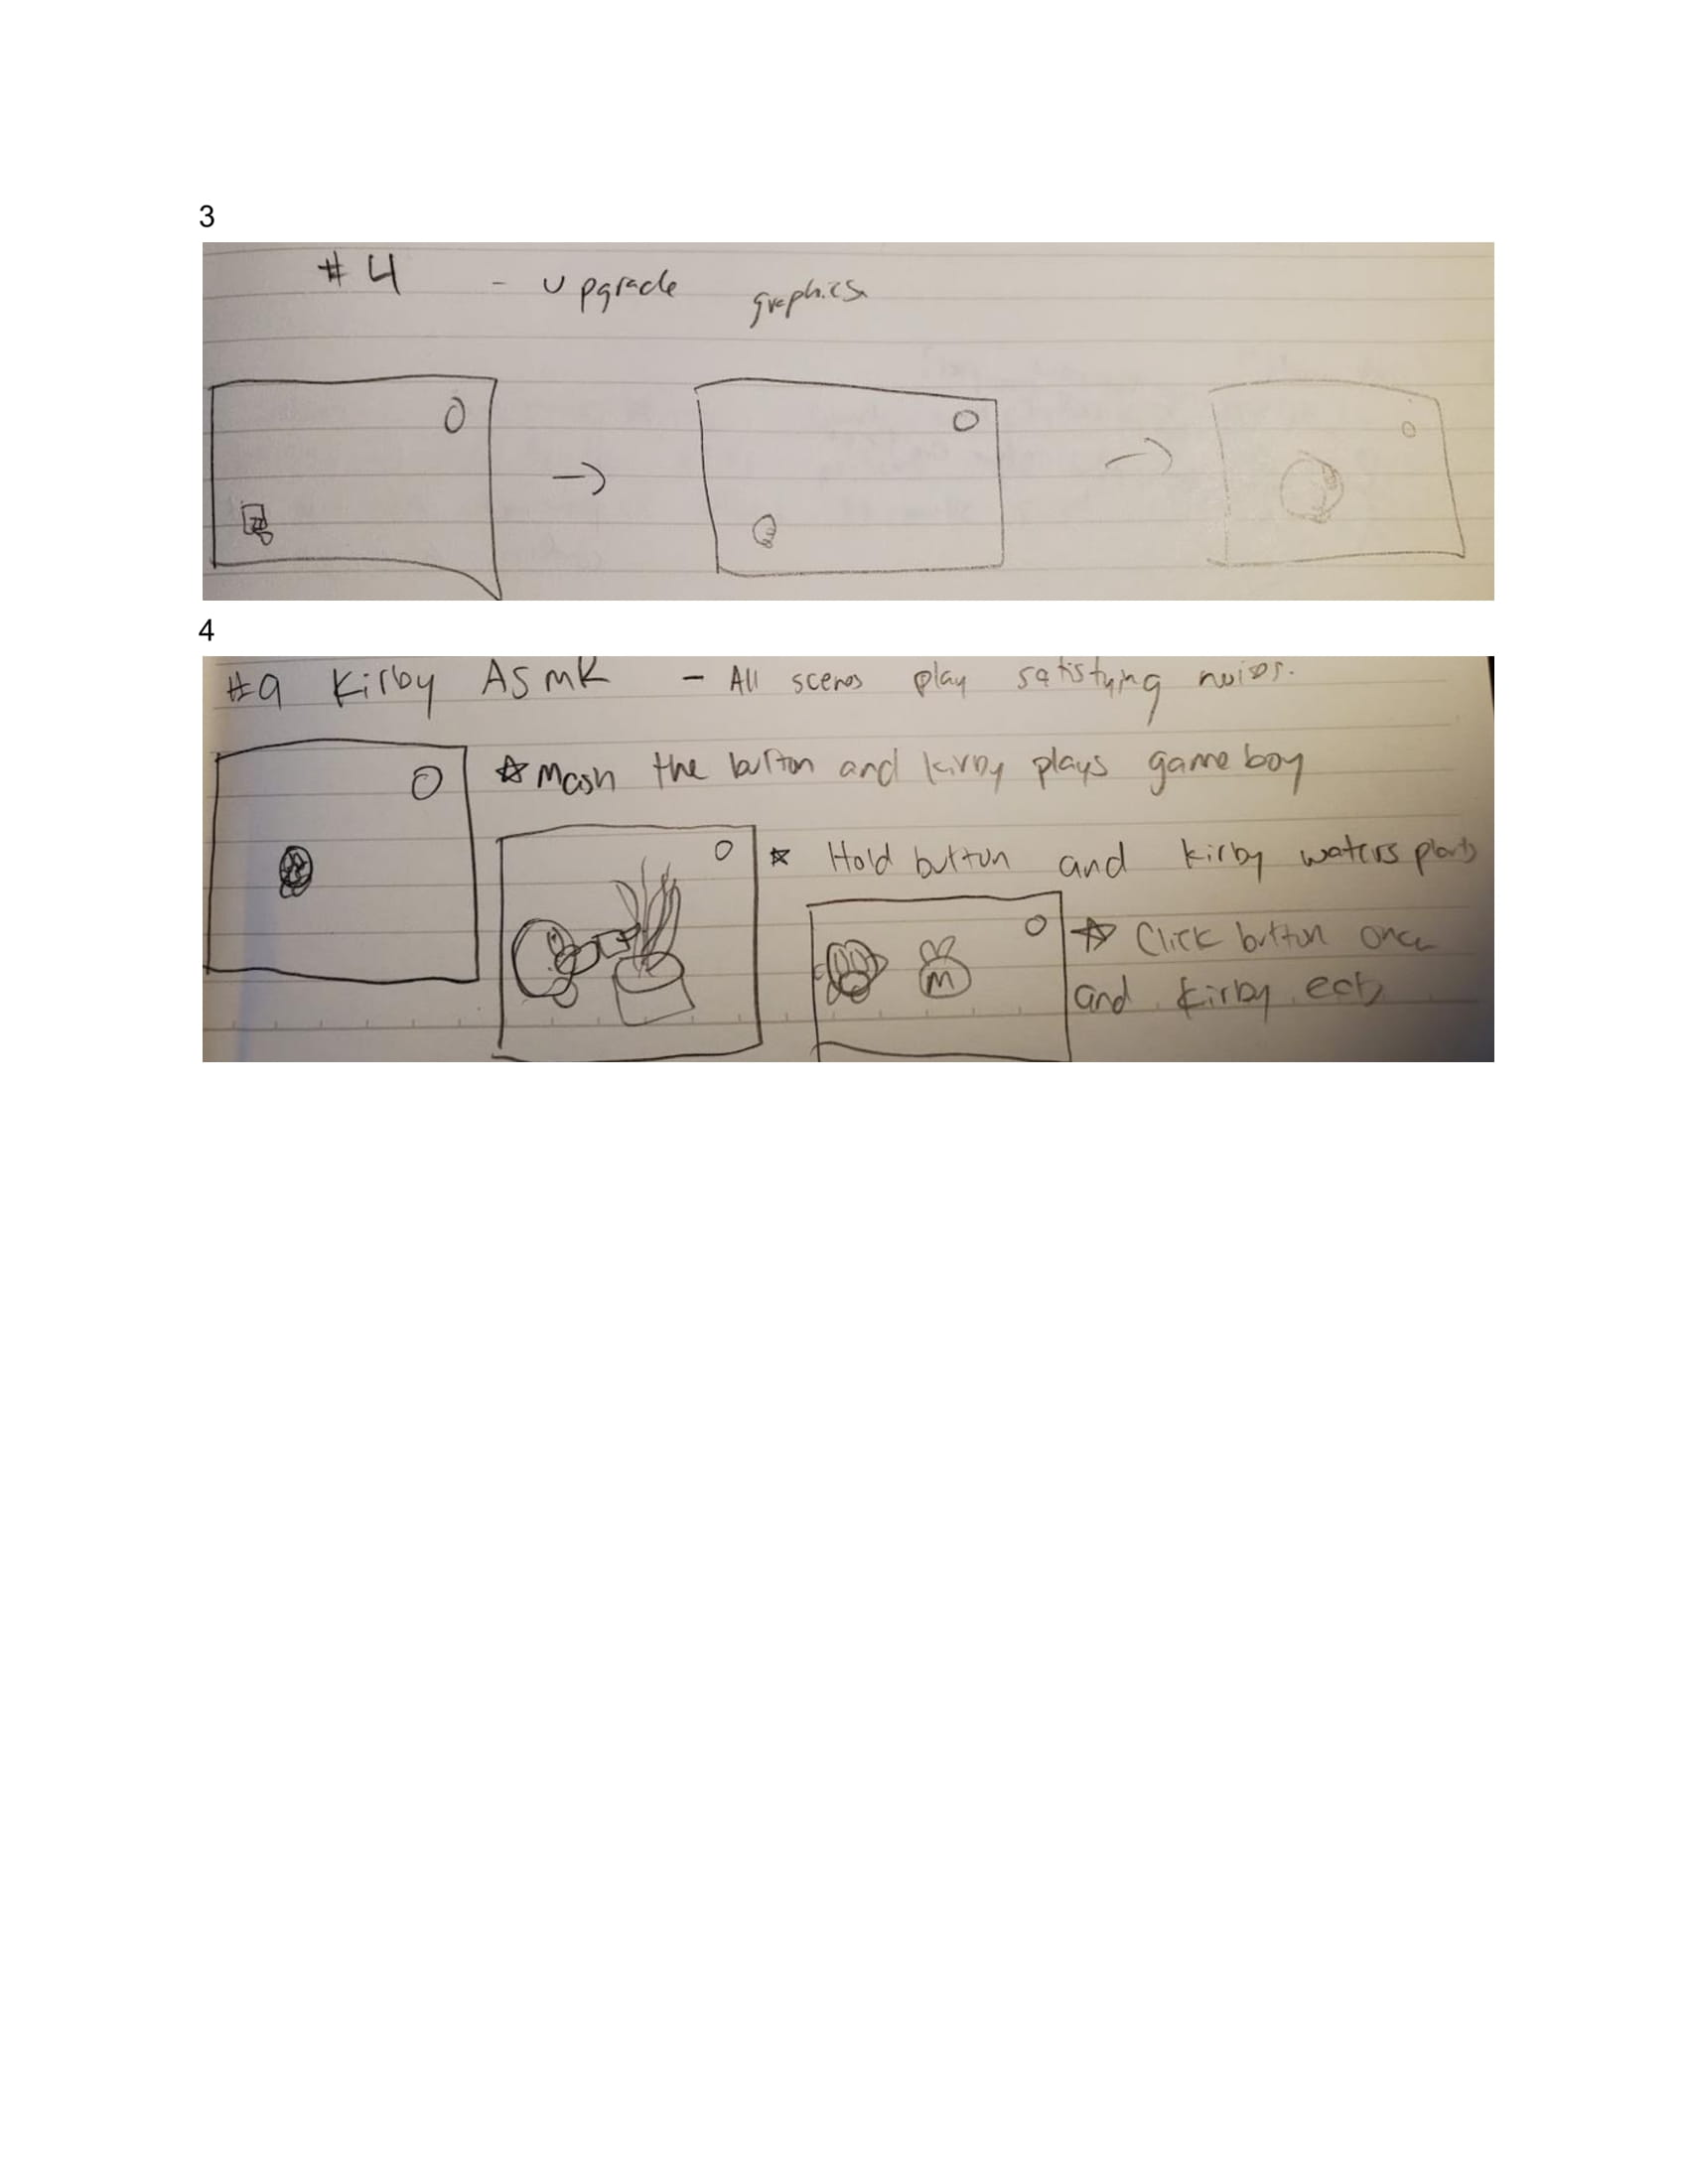 3
#4 - upgrade graphics
4
#9 Kirby ASMR - All scenes play satisfying noises.
☆ Mash the button and kirby plays game boy
☆ Hold button and kirby waters plants
☆ Click button once
and kirby eats
M